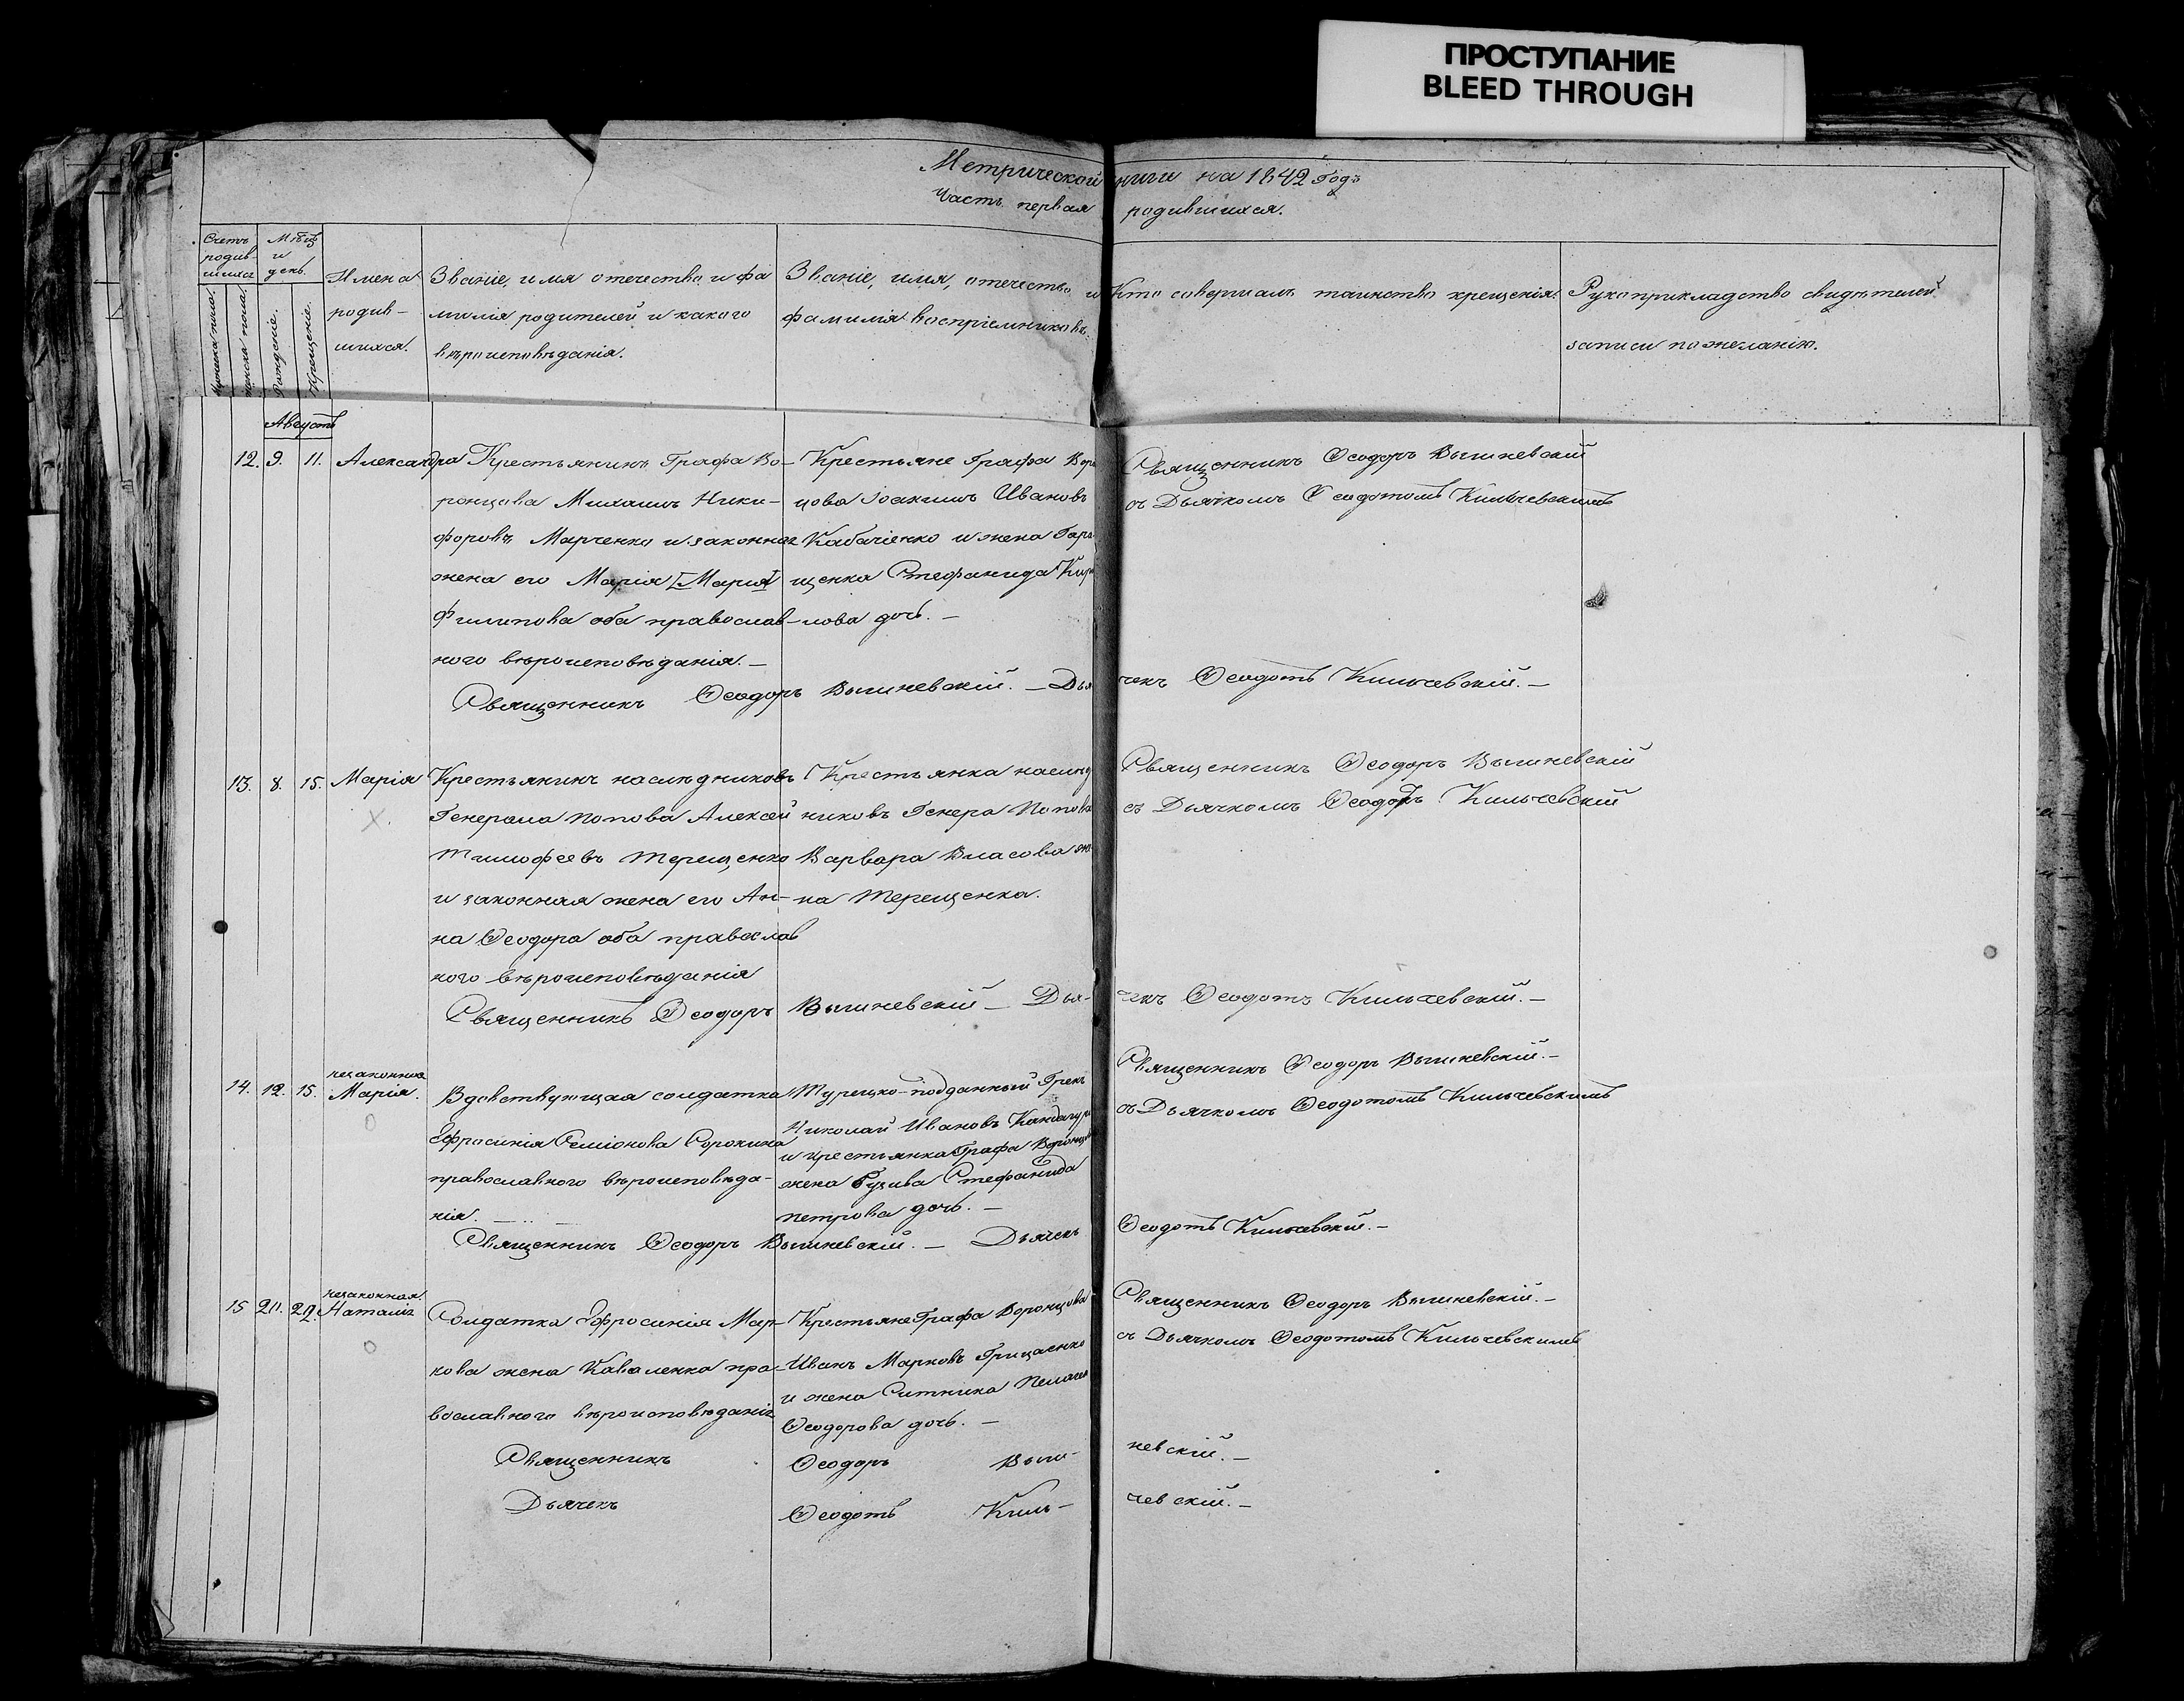 ПРОСТУПАНИЕ
BLEED THROUGH
Метрической ниги на 1842 Годъ
Часть первая родившихся.
Счетъ родив- шихся
Мужеска пола.
женска пола.
Мѣсяцъ и день.
Рожденіе.
Крещеніе.
Имена родив- шихся.
Званіе, имя отечество, и фа
милія родителей и какого
вѣроисповѣданія.
Званіе, имя, отечество, и
фамилія воспріемниковъ.
Кто совершалъ таинство крещенія.
Рукоприкладство свидѣтелей
записи по желанію.
Августъ
12. 9. 11. Александра
Крестьянинъ Графа Во-
ронцова Михаилъ Ники-
форовъ Марченко и законная
жена его Марія [Марія]
Филипова оба православ-
ного вѣроисповѣданія. —
Крестьяне Графа Вор
цова Іоакимъ Ивановъ
Кабаченко и жена Гара
щенка Стефанида Кир
лова дочь. —
Священникъ Ѳеодоръ Вышневскій
съ Дьячкомъ Ѳеодотомъ Кильчевскимъ
Священникъ Ѳеодоръ Вышневскій. — Дья чекъ Ѳеодотъ Кильчевскій. —
13. 8. 15. Марія
Крестьянинъ наслѣдниковъ
Генерала Попова Алексей
Тимофеевъ Терещенко
и законная жена его Ан-
на Ѳеодора оба православ
ного вѣроисповѣданія
Крестьянка наслѣд
никовъ Генера Попова
Варвара Власова же
на Терещенка.
Священникъ Ѳеодоръ Вышневскій
съ Дьячкомъ Ѳеодотъ Кильчевскій
Священникъ Ѳеодоръ Вышневскій — Дья- чекъ Ѳеодотъ Кильчевскій. —
14. 12. 15. незаконная Марія.
Вдовствующая солдатка
Эфросинія Семіонова Сорокина
православного вѣроисповѣда-
нія. —
Турецко-подданный Грекъ
Николай Ивановъ
и крестьянка Графа Воронцова
жена Стефанида
Петрова дочь. —
Священникъ Ѳеодоръ Вышневскій. —
съ Дьячкомъ Ѳеодотомъ Кильчевскимъ
Священникъ Ѳеодоръ Вышневскій. — Дьячекъ Ѳеодотъ Кильчевскій. —
15 20. 22. незаконная. Наталія
Солдатка Эфросинія Мар-
кова жена Коваленка пра-
вославного вѣроисповѣданія
Крестьяне Графа Воронцова
Иванъ Марковъ Грицаенко
и жена Ситника Пелагея
Ѳеодорова дочь. —
Священникъ Ѳеодоръ Вышневскій. —
съ Дьячкомъ Ѳеодотомъ Кильчевскимъ
Священникъ Ѳеодоръ Выш- невскій. —
Дьячекъ Ѳеодотъ Киль- чевскій. —